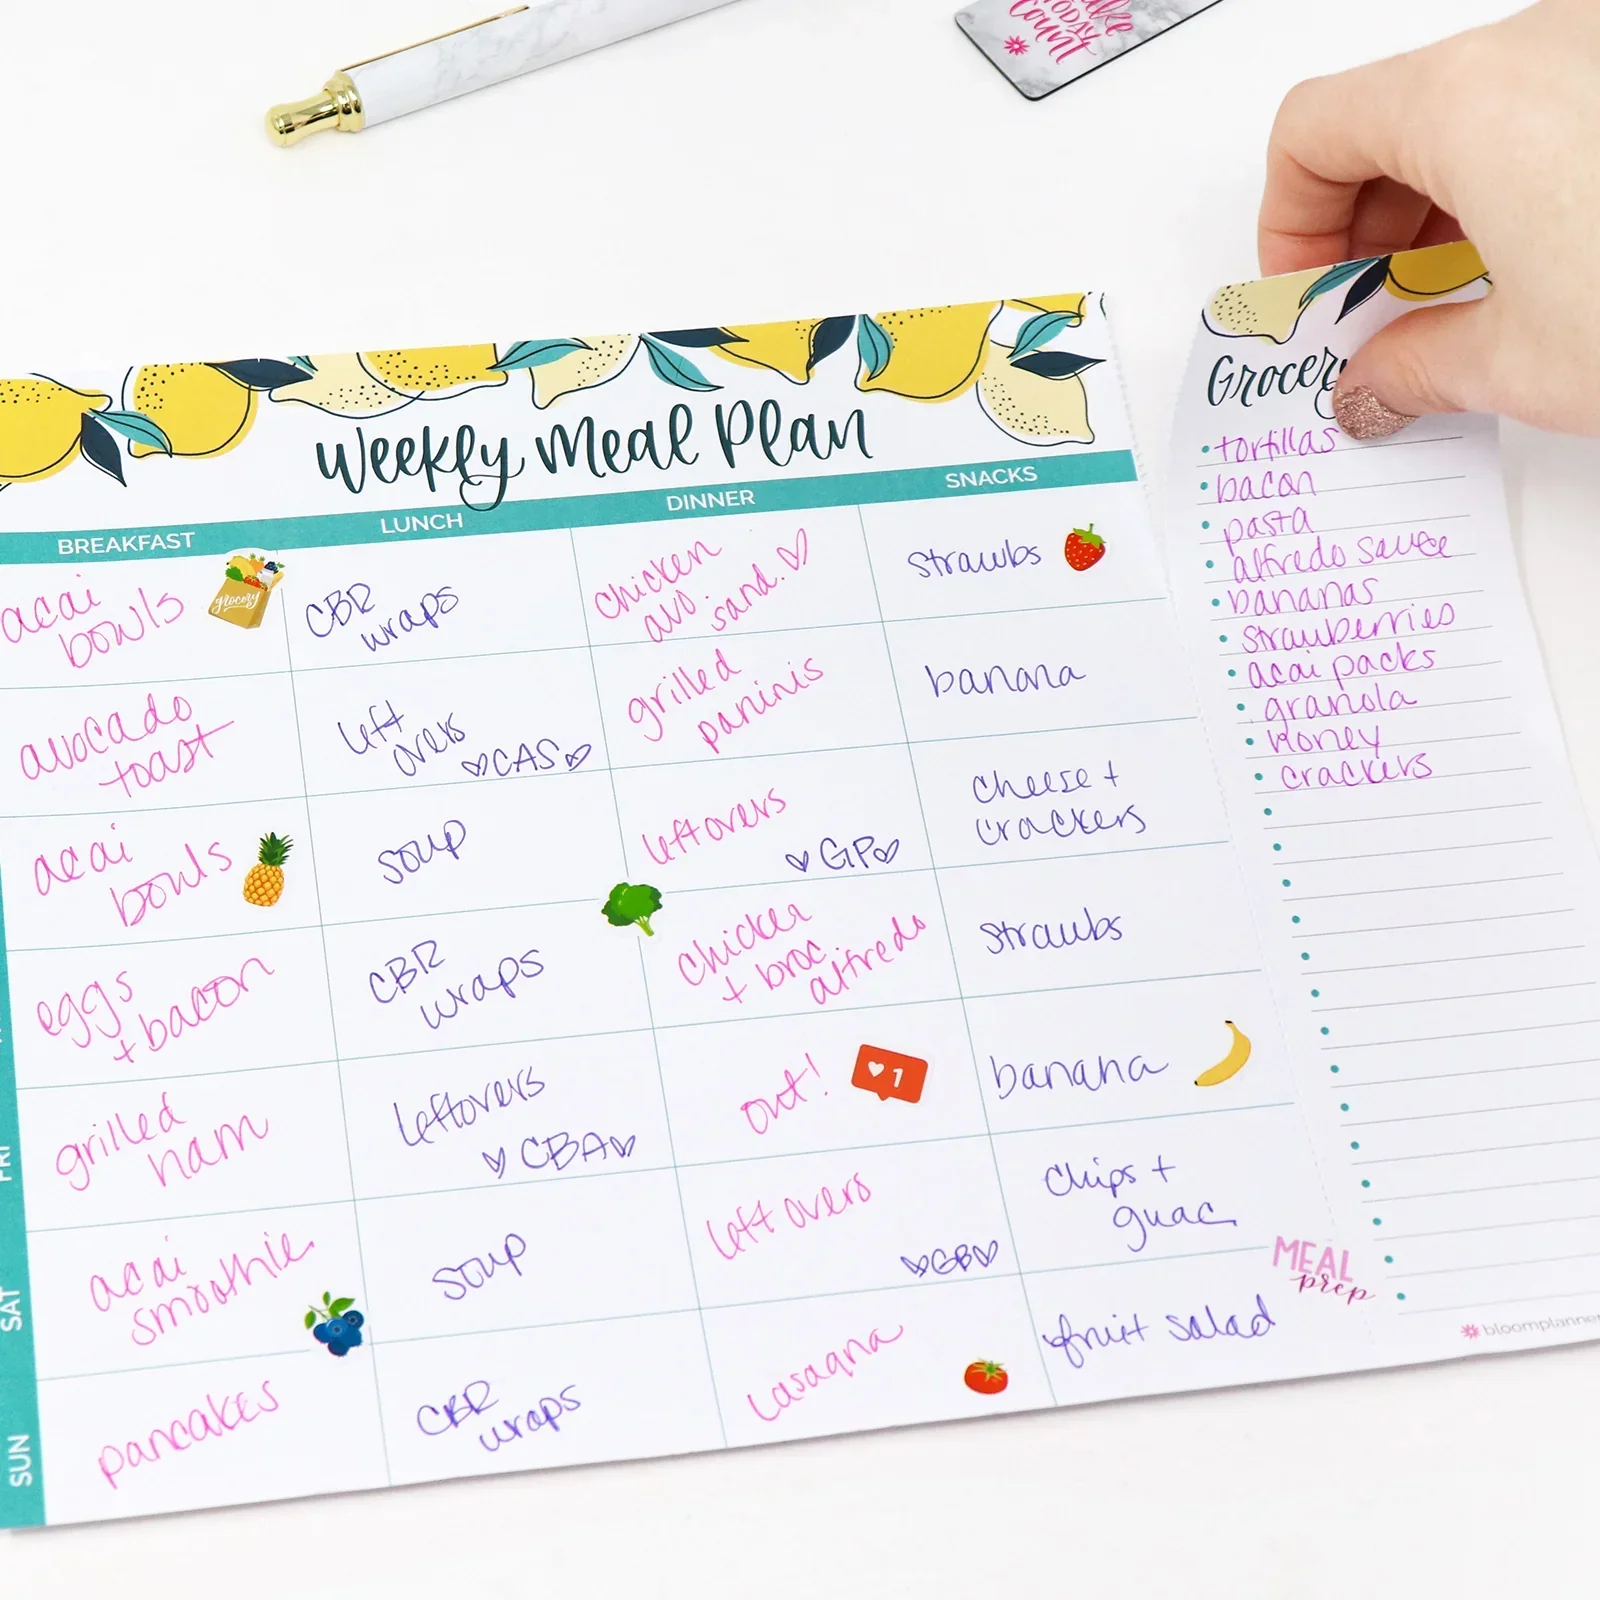 Make
TODAY
Count
Weekly Meal Plan
BREAKFAST
LUNCH
DINNER
SNACKS
acai
bowls
grocery
CBR
wraps
chicken
avo.
sand.
strawbs
avocado
toast
left
overs
CAS
grilled
paninis
banana
acai
bowls
soup
leftovers
GP
cheese +
crackers
eggs
+ bacon
CBR
wraps
chicken
+ broc
alfredo
strawbs
FRI
grilled
ham
leftovers
CBA
out!
1
banana
SAT
acai
smoothie
soup
left overs
GB
chips +
guac
SUN
pancakes
CBR
wraps
lasagna
fruit salad
MEAL
prep
Grocery
tortillas
bacon
pasta
alfredo sauce
bananas
strawberries
acai packs
granola
honey
crackers
bloomplanner